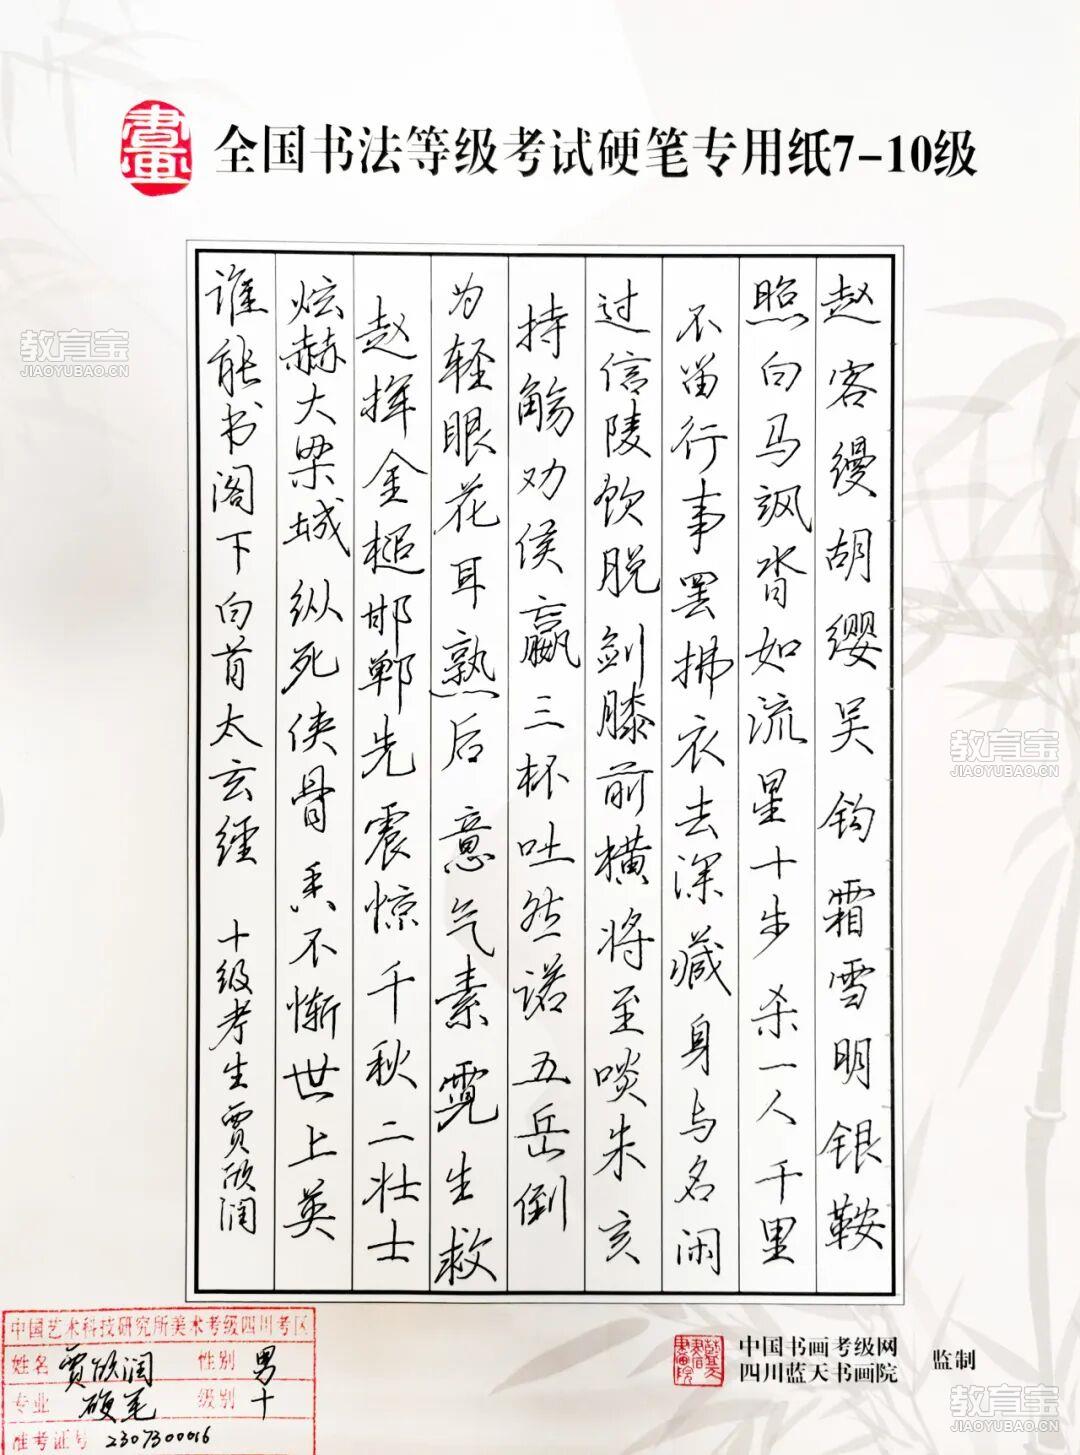 畫
全国书法等级考试硬笔专用纸7-10级
赵客缦胡缨吴钩霜雪明银鞍
照白马飒沓如流星十步杀一人千里
不留行事罢拂衣去深藏身与名闲
过信陵饮脱剑膝前横将至啖朱亥
持觞劝侯嬴三杯吐然诺五岳倒
为轻眼花耳熟后意气素霓生救
赵挥金槌邯郸先震惊千秋二壮士
炫赫大梁城纵死侠骨香不惭世上英
谁能书阁下白首太玄经 十级考生贾欣润
中国艺术科技研究所美术考级四川考区
姓名 贾欣润 性别 男
专业 硬笔 级别 十
准考证号 2307300016
中国书画考级网
四川蓝天书画院
监制
教育宝
JIAOYUBAO.CN
教育宝
JIAOYUBAO.CN
教育宝
JIAOYUBAO.CN
教育宝
JIAOYUBAO.CN